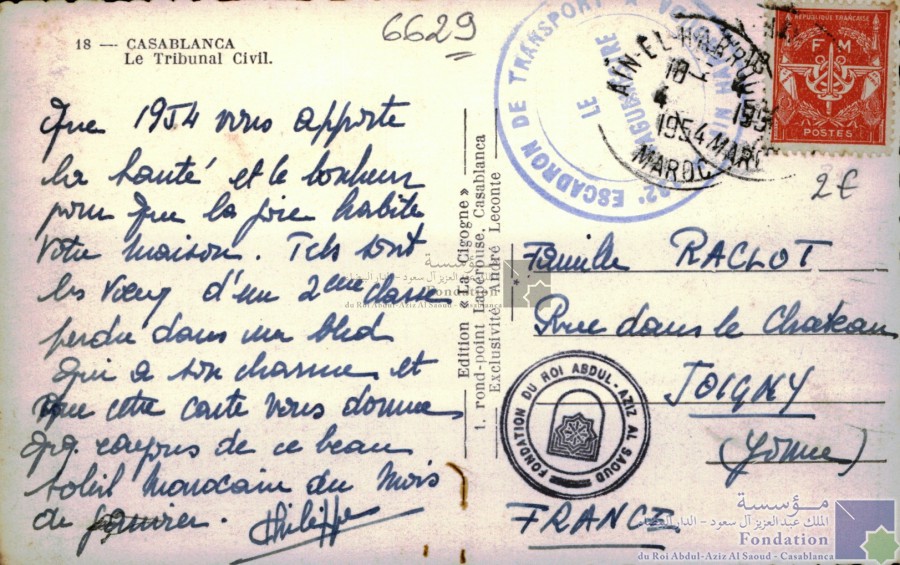 6629
18 — CASABLANCA
Le Tribunal Civil.
Que 1954 vous apporte
la santé et le bonheur
pour que la joie habite
votre maison. Tels sont
les vœux d'un 2ème classe
perdu dans un bled
qui a son charme et
que cette carte vous donne
qq. rayons de ce beau
soleil marocain du Mois
de Janvier. Philippe
Edition « La Cigogne »
1. rond-point Lapérouse, Casablanca
Exclusivité André Leconte
ESCADRON DE TRANSPORT
LE
AIN-EL-
18 - 4
1954
MAROC
REPUBLIQUE FRANÇAISE
F M
POSTES
2€
Famille RACLOT
Rue dans le Chateau
JOIGNY
(Yonne)
FRANCE
FONDATION DU ROI ABDUL-AZIZ AL SAOUD
مؤسسة
الملك عبد العزيز آل سعود - الدار البيضاء
Fondation
du Roi Abdul-Aziz Al Saoud - Casablanca
مؤسسة
الملك عبد العزيز آل سعود - الدار البيضاء
Fondation
du Roi Abdul-Aziz Al Saoud - Casablanca